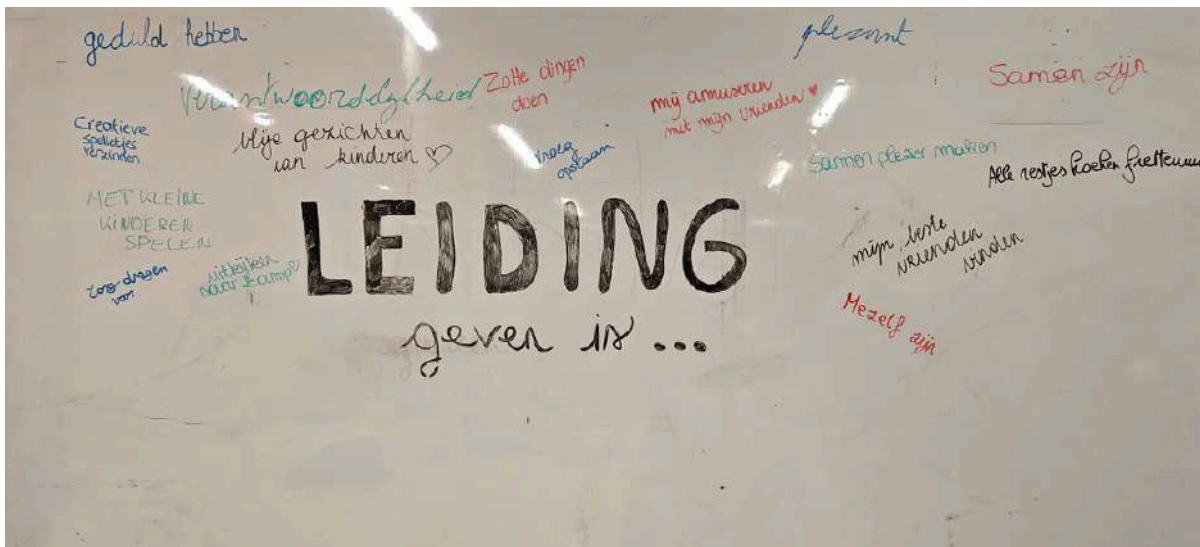 geduld hebben
plezant
Verantwoordelijkheid
Zotte dingen
doen
mij amuseren
met mijn vrienden ♥
Samen zijn
Creatieve
spelletjes
verzinnen
blije gezichten
van kinderen ♡
vroeg
opstaan
Samen plezier maken
Alle restjes koeken fretten
MET KLEINE
KINDEREN
SPELEN
zorg dragen
voor
uitkijken
naar kamp ♡
LEIDING
geven is ...
mijn beste
vrienden
vinden
Mezelf zijn